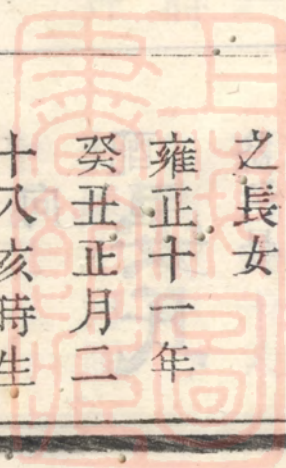 之長女
雍正十一年
癸丑正月二
十八亥時生